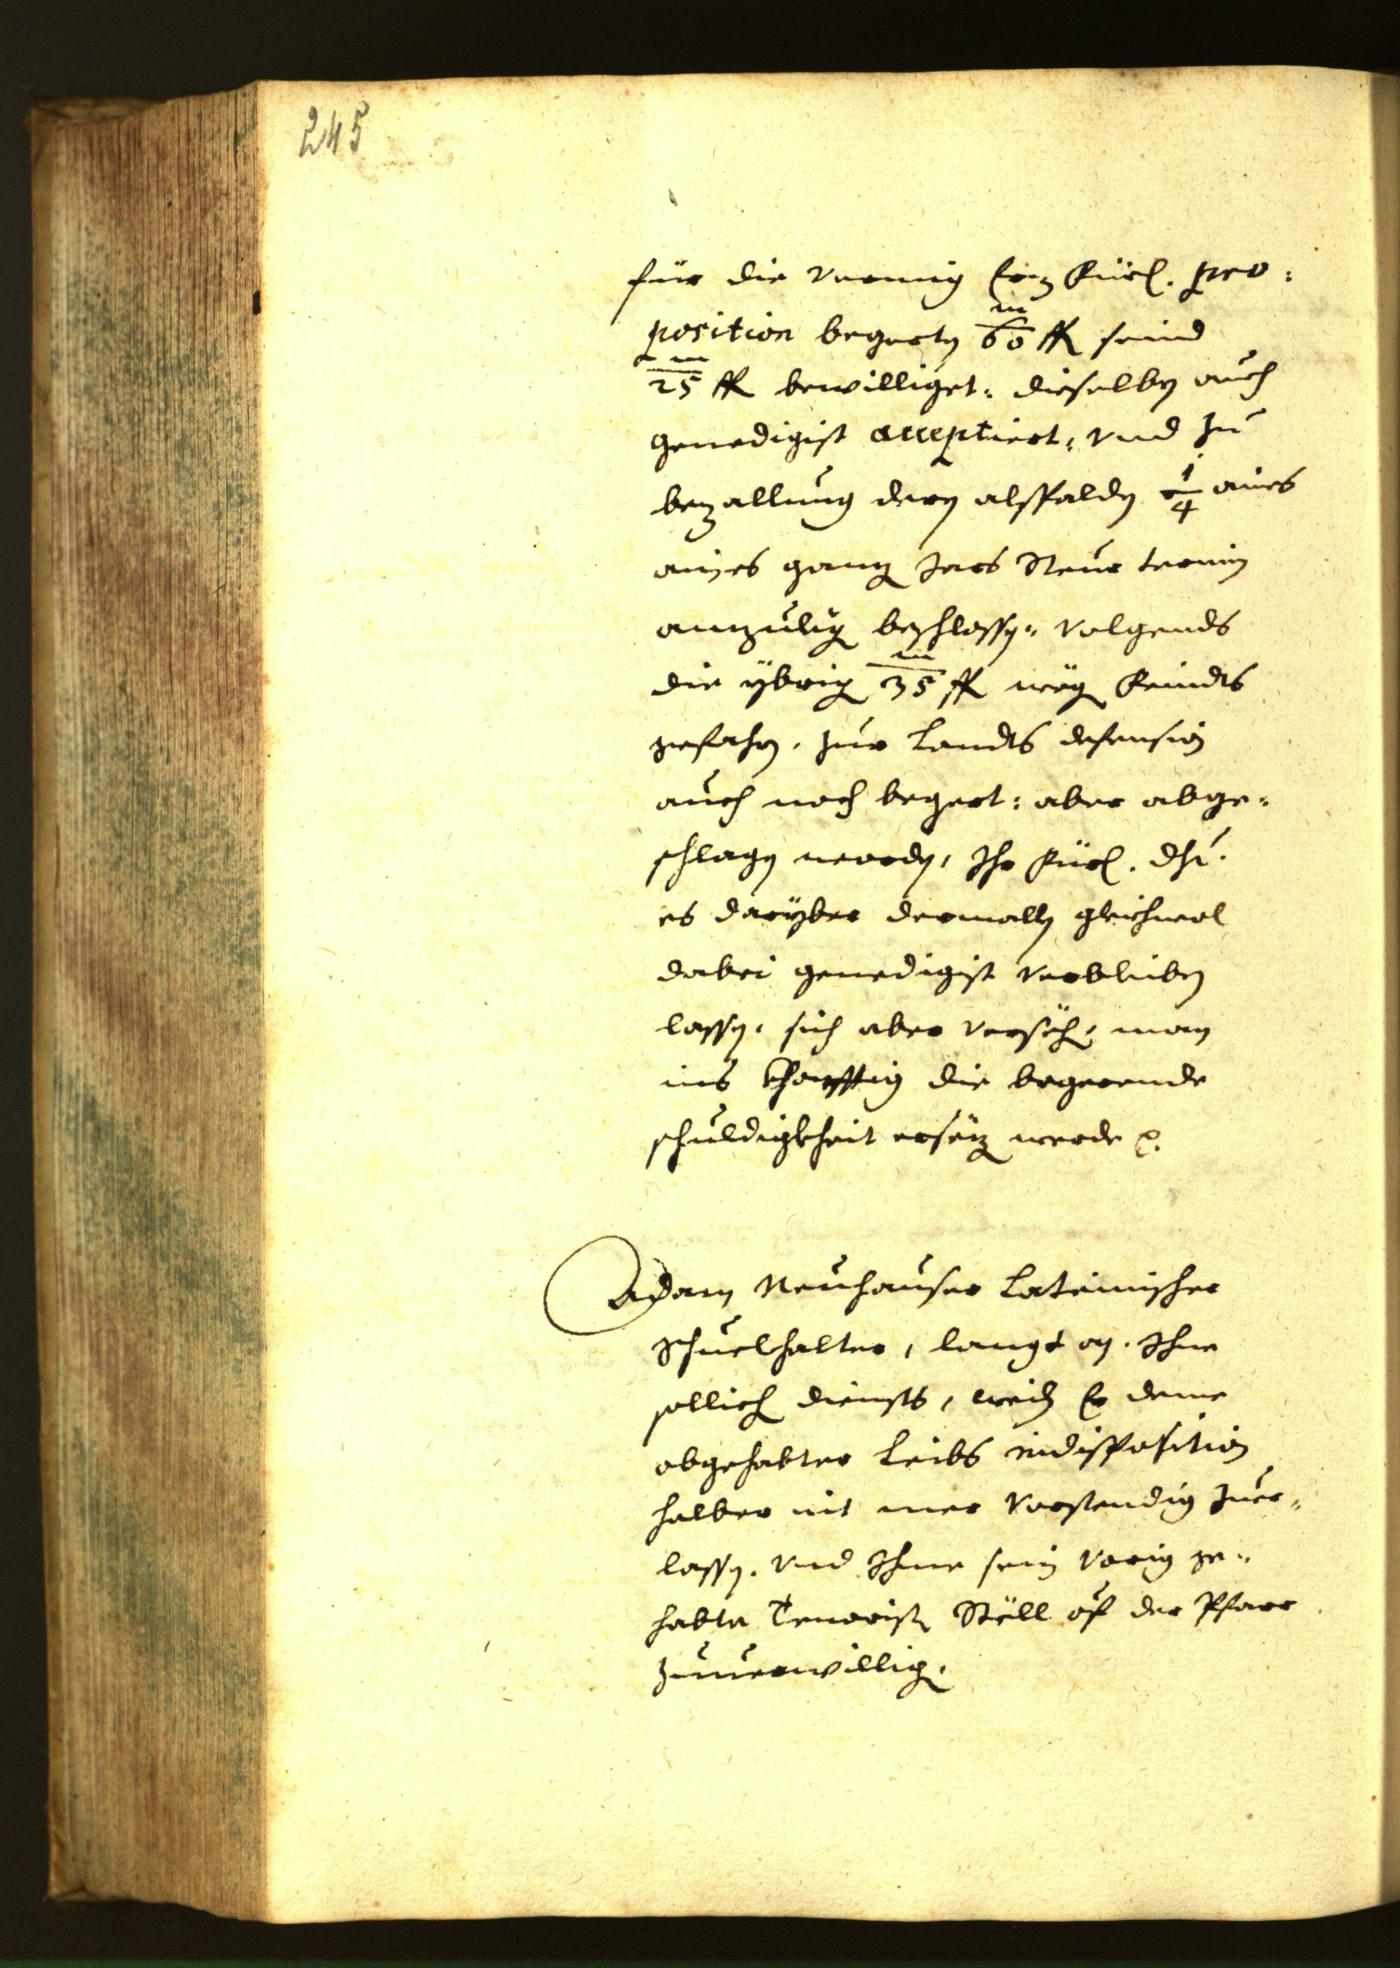 245
für die vermig Erz Fürl. pro:
position begerten m/60 fl seind
m/25 fl bewilliget: dieselben auch
genedigist acceptiert, vnd zu
bezallung deren alsßalden 1/4 aines
aines ganz Jars Steur termin
anzulig beschlossen: volgends
die ÿbrig m/35 fl weg Feindts
gefahr, zur Landts defension
auch noch begert: aber abge=
schlagen worden, Ihr Fürl. Dht.
es darÿber dermallen gleichwol
dabei genedigist verbleiben
lassen, sich aber verseh, man
ins khonfftig die begerende
schuldigkheit ersez werde p.
Adam Neuhauser Lateinischer
Schuelhalter, langt an, Ihne
sollich diensts, weil Er deme
obgehabter Leibs indisposition
halber nit mer vorstendig zuer=
lassen, vnd Ihme sein vorig ge=
habte Tenorist Stöll auf der Pfarr
zuuerwillig.